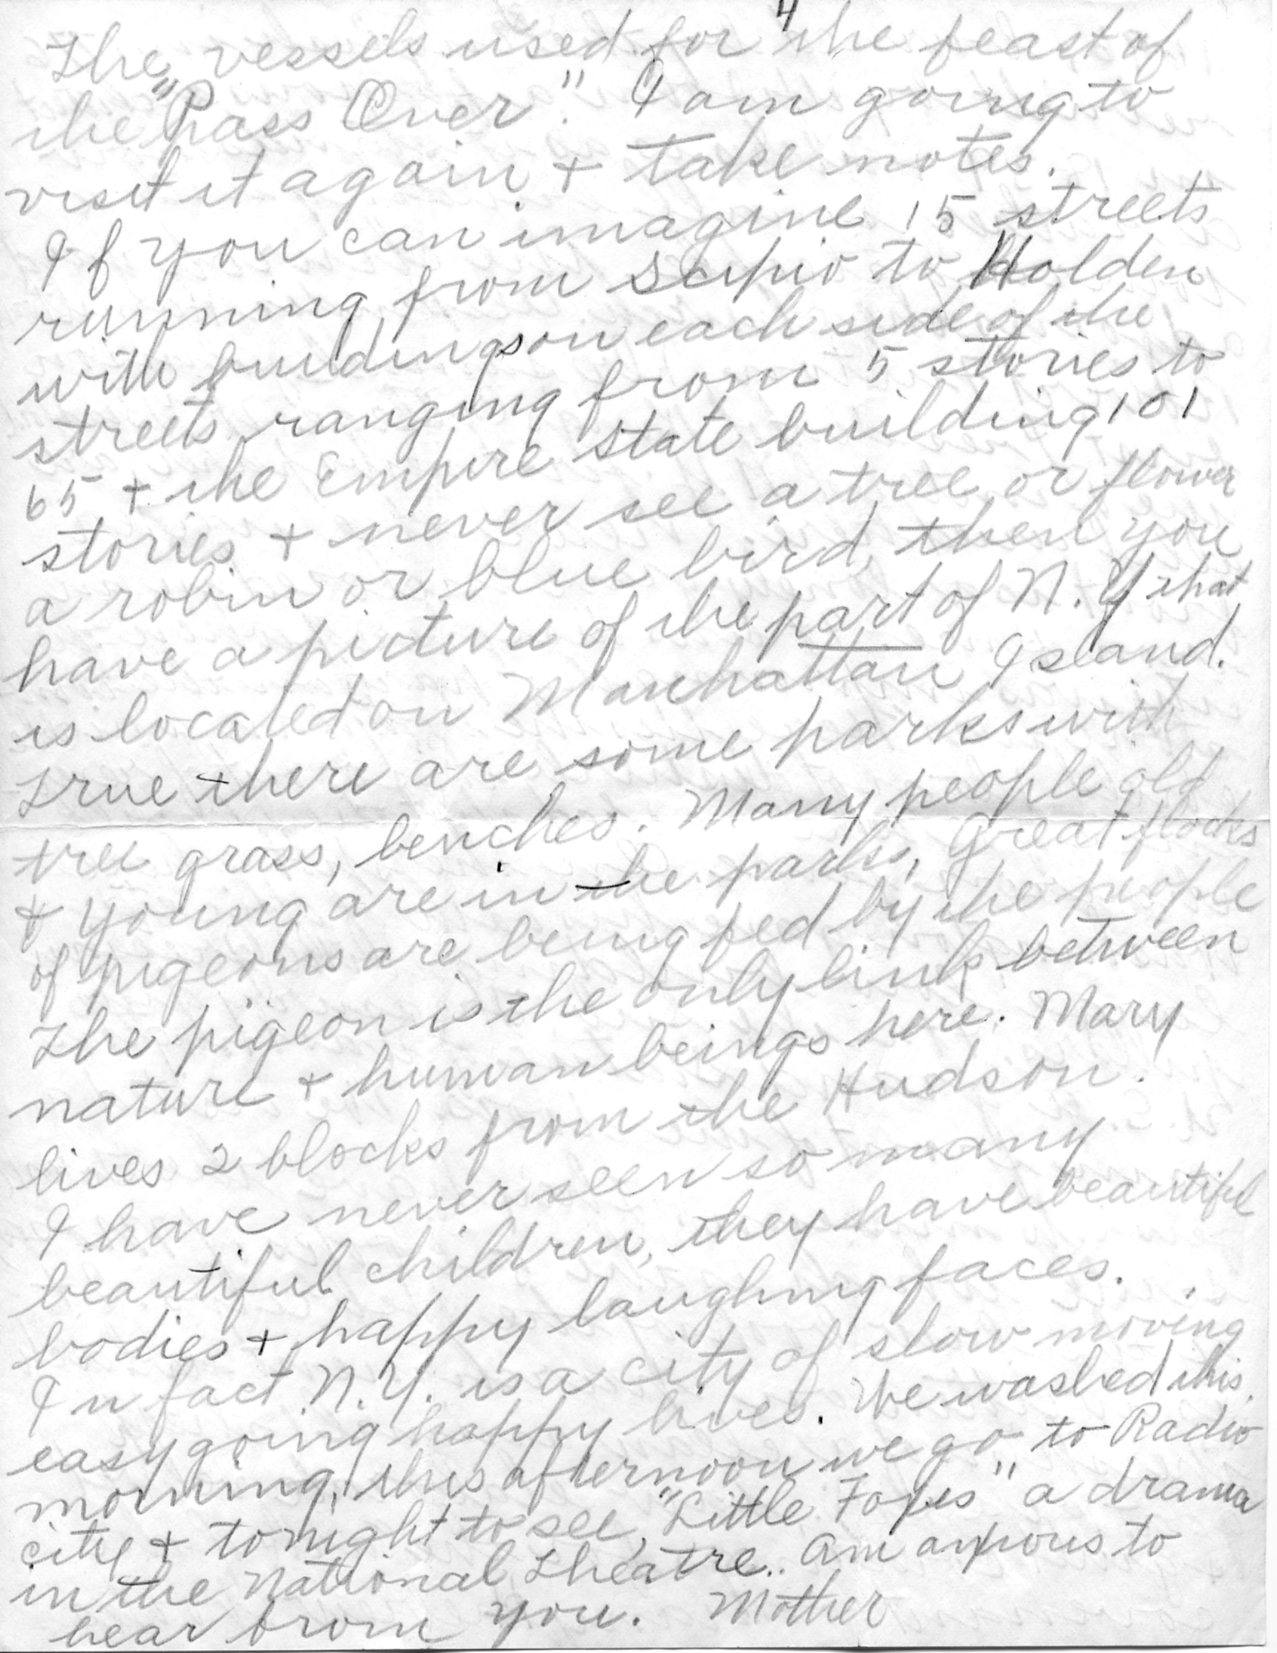 4
The vessels used for the feast of
the "Pass Over". I am going to
visit it again + take notes.
If you can imagine 15 streets
running from Scipio to Holden
with buildings on each side of the
streets ranging from 5 stories to
65 + the Empire State building 101
stories + never see a tree or flower
a robin or blue bird, then you
have a picture of the part of N.Y that
is located on Manhattan Island.
True there are some parks with
tree grass, benches. Many people old
+ young are in the parks, Great flocks
of pigeons are being fed by the people
The pigeon is the only link between
nature + human beings here. Mary
lives 2 blocks from the Hudson.
I have never seen so many
beautiful children, they have beautiful
bodies + happy laughing faces.
In fact N.Y. is a city of slow moving
easy going happy lives. We washed this
morning, this afternoon we go to Radio
city + tonight to see, "Little Foxes" a drama
in the National Theatre.. Am anxious to
hear from you. Mother